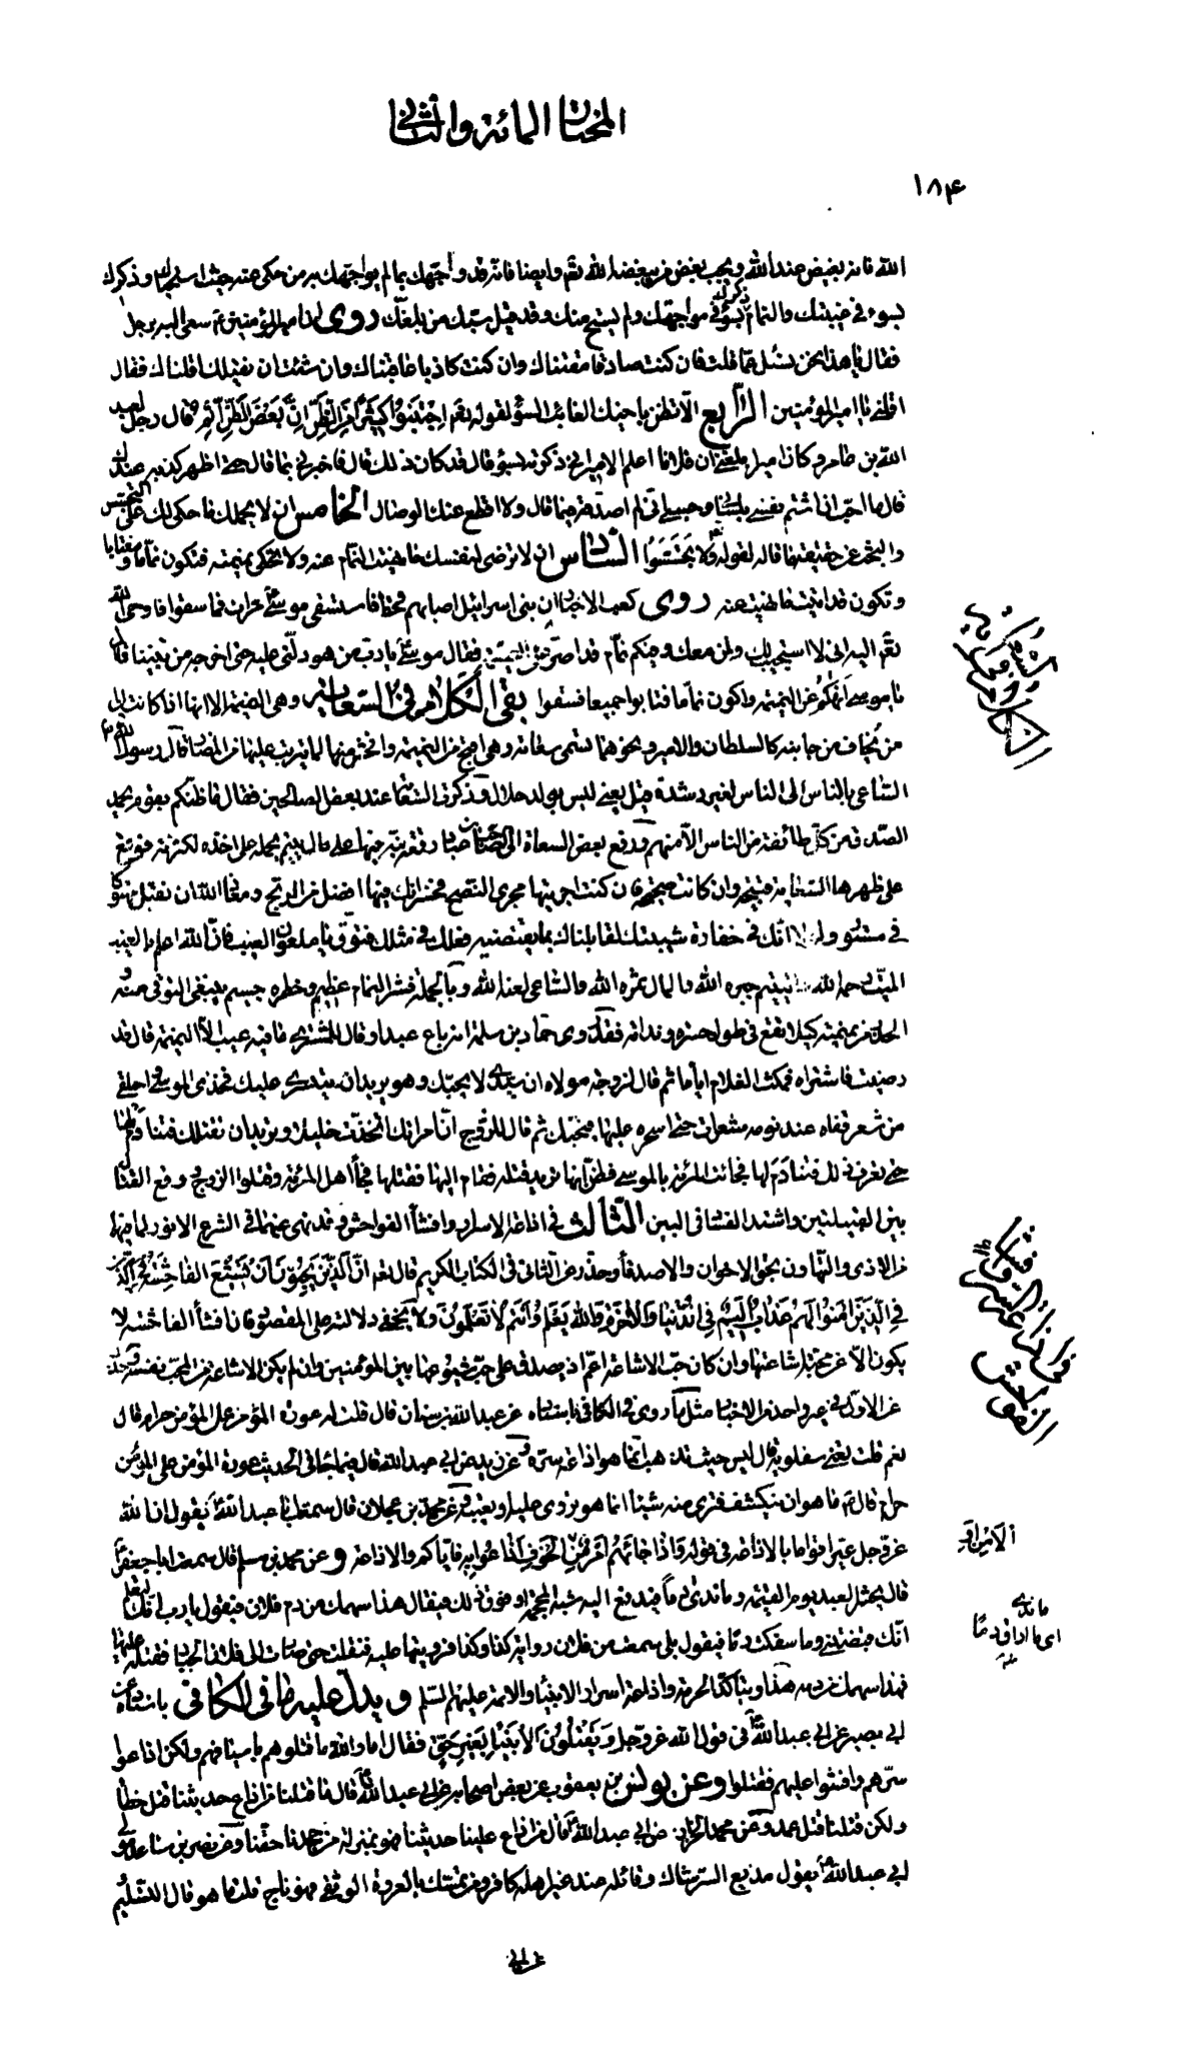 المختار المائة والثاني
١٨۴
الله فانه بغيض عند الله ويجب بغض من يبغضه الله تعم وايضا فانه قد واجهك بما لم يواجهك به من حكى عنه حيث وذكرك
بسوء في غيبتك والنمام ذكرك بسوء في مواجهتك ولم يستح منك وقد قيل سبك من بلغك روى ان امير المؤمنين ع سعى اليه برجل
فقال يا هذا نحن نسئل عما قلت فان كنت صادقا مقتناك وان كنت كاذبا عاقبناك وان شئت ان نقيلك اقلناك فقال
اقلني يا امير المؤمنين الرابع ان لا تظن باخيك الغائب السوء لقوله تعم اجتنبوا كثيرا من الظن ان بعض الظن اثم وقال رجل لعبد
الله بن طاهر وكان اميرا بلغني ان فلانا اعلم الامير اني ذكرته بسوء قال قد كان ذلك قال فاخبرني بما قال حتى اظهر كذبه عندك
قال ما احب ان اشتم نفسي بلساني وحسبي اني لم اصدقه فيما قال ولا اقطع عنك الوصال الخامس ان لا يحملك ما حكى لك على التجسس
والبحث عن حقيقة ما قاله لقوله تعم ولا تجسسوا السادس ان لا ترضى لنفسك ما نهيت النمام عنه ولا تحكى نميمته فتكون نماما ومغتابا
وتكون قد اتيت بما نهيت عنه روى كعب الاحبار ان بنى اسرائيل اصابهم قحط فاستسقى موسى مرات فما سقوا فاوحى الله
تعم اليه انى لا استجيب لك ولمن معك وفيكم نمام قد اصر على النميمة فقال موسى يا رب من هو دلنى عليه حتى اخرجه من بيننا قال
يا موسى انهاكم عن النميمة واكون نماما فتابوا جميعا فسقوا بقى الكلام في السعاية وهى النميمة الا انها اذا كانت الى
من يخاف من جانبه كالسلطان والامير ونحوهما تسمى سعاية وهى اقبح من النميمة وافحش منها لما يترتب عليها من المضار قال رسول الله ص
الساعى بالناس الى الناس لغير رشدة قيل يعنى ليس بولد حلال وذكرت السعاة عند بعض الصالحين فقال ما ظنكم بقوم يحمد
الصدق من كل طائفة من الناس الا منهم ورفع بعض السعاة الى الصاحب بن عباد رقعة نبه فيها على مال يتيم يحمله على اخذه لكثرته فوقع
على ظهرها السعاية قبيحة وان كانت صحيحة فان كنت اجريتها مجرى النصح فخسرانك فيها افضل من الربح ومعاذ الله ان نقبل مهتوكا
في مستور ولولا انك في خفارة شيبتك لقابلناك بما يقتضيه فعلك في مثلك فتوق يا ملعون العيب فان الله اعلم بالغيب
الميت رحمه الله واليتيم جبره الله والمال ثمره الله والساعى لعنه الله وبالجملة فشر النمام عظيم وخطره جسيم ينبغى التوقى منه و
الحذر من نميمته كيلا تقع في طول حسرة وندامة فقد روى حماد بن سلمة انه باع عبدا وقال للمشترى ما فيه عيب الا النميمة قال قد
رضيت فاشتراه فمكث الغلام اياما ثم قال لزوجة مولاه ان سيدى لا يحبك وهو يريدان يتسرى عليك فخذى الموسى واحلقى
من شعر قفاه عند نومه شعرات حتى اسحره عليها فيحبك ثم قال للزوج ان امرأتك اتخذت خليلا وتريدان تقتلك فتناوم لها
حتى تعرف ذلك فتناوم لها فجائت المرئة بالموسى فظن انها تريد قتله فقام اليها فقتلها فجاء اهل المرئة وقتلوا الزوج ووقع القتال
بين القبيلتين واشتد الفتنة في البين الثالث في اذاعة الاسرار وافشاء الفواحش وقد نهى عنهما في الشرع الانور لما فيها
من الاذى والتهاون بحق الاخوان والاصدقاء وحذر عن الثانى في الكتاب الكريم قال تعم ان الذين يحبون ان تشيع الفاحشة
في الذين امنوا لهم عذاب اليم في الدنيا والاخرة والله يعلم وانتم لا تعلمون ولا يخفى دلالته على المقصود فان افشاء الفاحشة لا
يكون الا عن محبة اشاعتها وان كان حب الاشاعة اعم اذ يصدق على حب شيوعها بين المؤمنين وان لم يكن الاشاعة من المحب نفسه
عن الاول في غير واحد من الاخبار مثل ما روى في الكافي باسناده عن عبد الله بن سنان قال قلت له عورة المؤمن على المؤمن حرام قال
نعم قلت يعنى سفليه قال ليس حيث تذهب انما هو اذاعة سره وعن زيد عن ابى عبد الله قال فيما جاء في الحديث عورة المؤمن على المؤمن
حرام قال ما هو ان ينكشف فترى منه شيئا انما هو تروى عليه او تعيبه وعن محمد بن عجلان قال سمعت ابا عبد الله يقول ان الله
عز وجل عير اقواما بالاذاعة في قوله واذا جائهم امر من الامن او الخوف اذاعوا به فاياكم والاذاعة وعن محمد بن مسلم قال سمعت ابا جعفر
قال يحشر العبد يوم القيمة وما ندى دما فيدفع اليه شبه المحجمة او فوق ذلك فيقال هذا سهمك من دم فلان فيقول يا رب انك لتعلم
انك قبضتنى وما سفكت دما فيقول بلى سمعت من فلان رواية كذا وكذا فرويتها عليه فنقلت حتى صارت الى فلان الجبار فقتله عليها
فهذا سهمك من دمه هذا ويتاكد الحرمة واذاعة اسرار الانبياء والائمة عليهم السلام ويدل عليه ما في الكافي باسناده عن
ابى بصير عن ابى عبد الله في قول الله عز وجل ويقتلون الانبياء بغير حق فقال اما والله ما قتلوهم باسيافهم ولكن اذاعوا
سرهم وافشوا عليهم فقتلوا وعن يونس بن يعقوب عن بعض اصحابه عن ابى عبد الله قال ما قتلنا من اذاع حديثنا قتل خطأ
ولكن قتلنا قتل عمد وعن محمد الخزاز عن ابى عبد الله قال من اذاع علينا حديثنا فهو بمنزلة من جحدنا حقنا وعن نصر بن صاعد مولى
ابى عبد الله يقول مذيع السر شاك وقائله عند غير اهله كافر ومن تمسك بالعروة الوثقى فهو ناج قلت ما هو قال التسليم
افشاء
الفواحش
الامن او
ما ندى
اى ما اراق دما